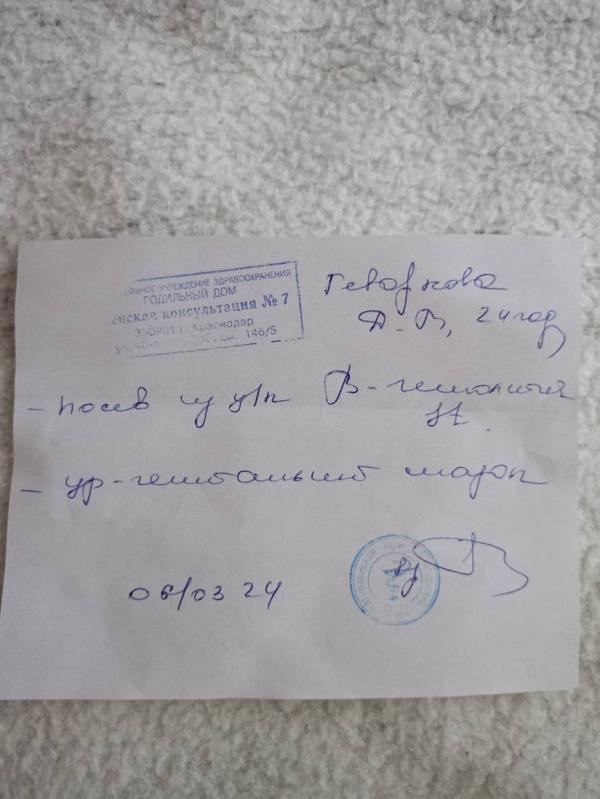 УЧРЕЖДЕНИЕ ЗДРАВООХРАНЕНИЯ
РОДИЛЬНЫЙ ДОМ
енская консультация № 7
350901 г. Краснодар
146/5
Геворкова
24 год
- посев из у/п В-гемолитич
st.
- ур-генитальный мазок
06/03 24